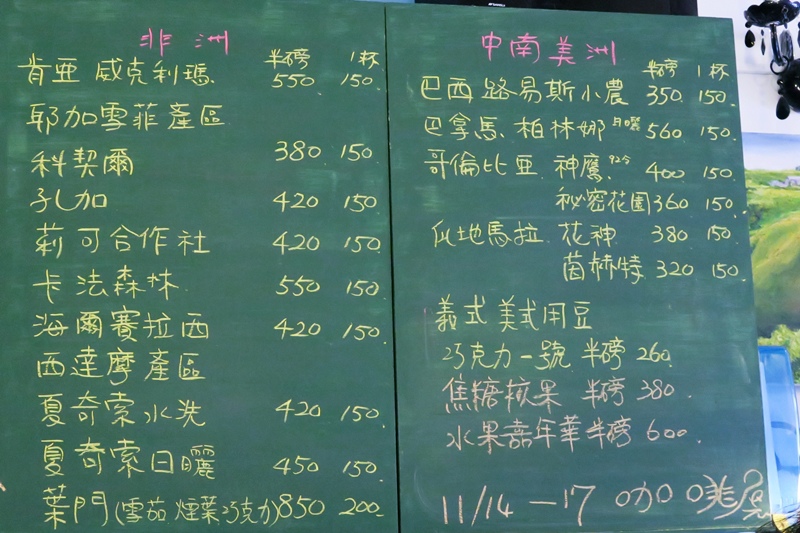 非洲
半磅 1杯
肯亞 威克利瑪 550 150.
耶加雪菲產區
科契爾 380 150.
孔加 420 150
莉可合作社 420 150.
卡法森林 550 150.
海爾賽拉西 420 150.
西達摩產區
夏奇索水洗 420 150.
夏奇索日曬 450 150.
葉門(雪茄 煙葉 巧克力) 850 200.
中南美洲
半磅 1杯
巴西 路易斯小農 350. 150.
巴拿馬 柏林娜 日曬 560 150.
哥倫比亞 神鷹 92分 400 150.
祕密花園 360 150.
瓜地馬拉 花神 380 150.
茵赫特 320 150.
義式 美式用豆
巧克力一號 半磅 260.
焦糖蘋果 半磅 380.
水果嘉年華 半磅 600.
11/14 - 17 咖啡展